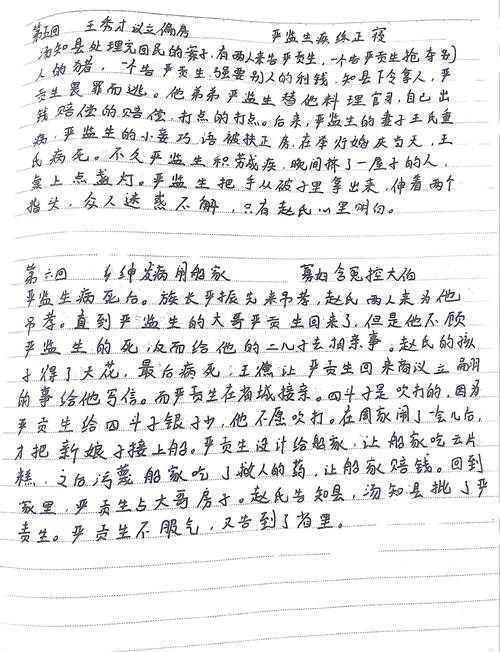 第五回 王秀才议立偏房 严监生疾终正寝
汤知县处理完回民的案子,有两人来告严贡生,一个告严贡生抢夺别
人的猪,一个告严贡生强要别人的利钱,知县下令拿人,严
贡生畏罪而逃。他弟弟严监生替他料理官司,自己出
钱赔偿的赔偿,打点的打点。后来,严监生的妻子王氏重
病,严监生的小妾巧语被扶正房,在举行婚庆当天,王
氏病死。不久严监生积劳成疾,晚间挤了一屋子的人,
桌上点盏灯。严监生把手从被子里拿出来,伸着两个
指头,众人迷惑不解,只有赵氏心里明白。
第六回 乡绅发病闹船家 寡妇含冤控大伯
严监生病死后。族长严振先来吊孝,赵氏两人来为他
吊孝。直到严监生的大哥严贡生回来了,但是他不顾
严监生的死,反而给他的二儿子去相亲事。赵氏的孩
子得了天花,最后病死,王德让严贡生回来商议立嗣
的事给他写信。而严贡生在省城接亲。四斗子是吹打的,因为
严贡生给四斗子银子少,他不愿吹打。在周家闹了一会儿后,
才把新娘子接上船。严贡生设计给船家,让船家吃云片
糕,之后污蔑船家吃了救人的药,让船家赔钱。回到
家里,严贡生占大哥房子。赵氏告知县,汤知县批了严
贡生。严贡生不服气,又告到了省里。